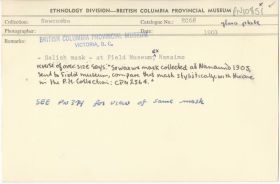 ETHNOLOGY DIVISION—BRITISH COLUMBIA PROVINCIAL MUSEUM PN10851
Source: Newcombe Catalogue No: E068 glass plate
Photographer: 1903
Remarks:
BRITISH COLUMBIA PROVINCIAL MUSEUM
VICTORIA, B. C.
- Salish mask - at Field Museum ex Nanaimo
reverse of size says: "Sxwaixwe mask collected at Nanaimo 1903,
sent to Field museum, compare this mask stylistically with the one
in the P.M. Collection: CPN 2564."
SEE PN 394 for view of same mask